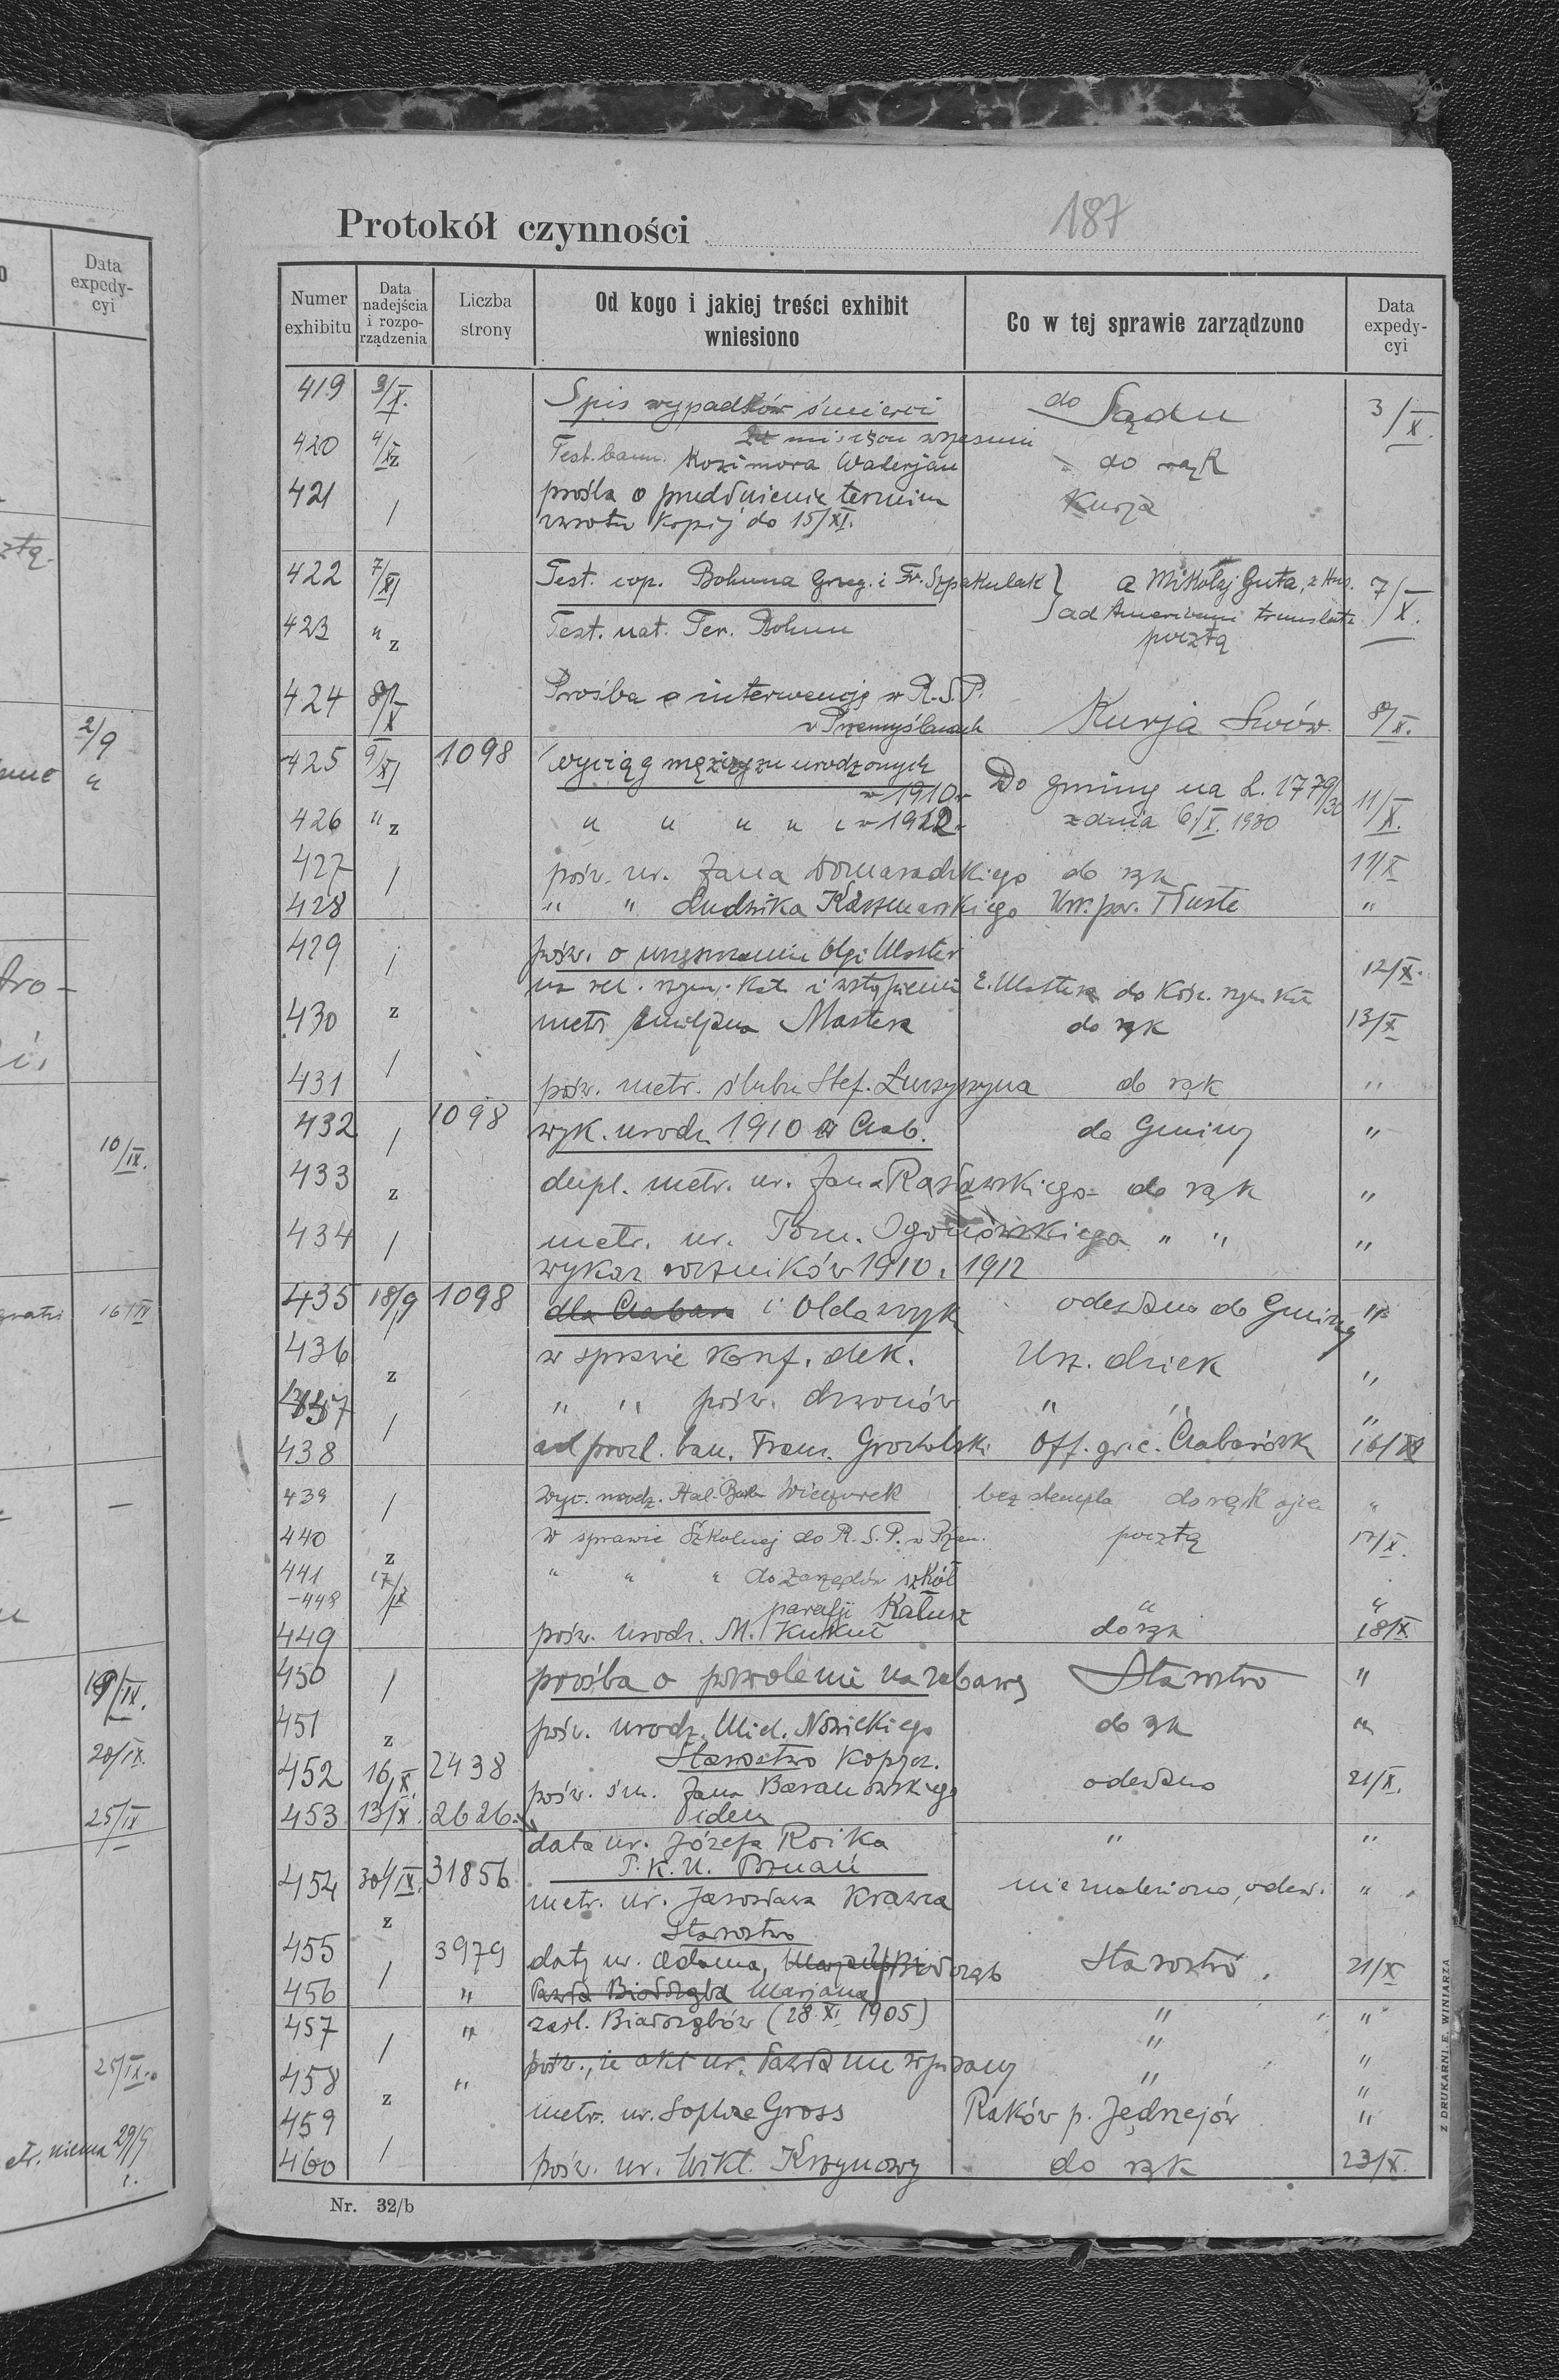 Protokół czynności 187
Numer exhibitu
Data nadejścia i rozporządzenia
Liczba strony
Od kogo i jakiej treści exhibit wniesiono
Co w tej sprawie zarządzono
Data expedycyi
419 3/X. Spis wypadków śmierci do Sądu 3/X.
za miesiąc wrzesień
420 4/X z Test. bann. Kozimora Walerjan do rąk
421 / prośba o przedłużenie termin Kurja
zwrotu kopij do 15/XI.
422 7/X Test. cop. Bohuna Grzeg. i Fr. Szpakulak } a Mikołaj Guta, z Hus. 7/X.
ad Americam translata
423 " z Test. nat. Ter. Bohun pocztą
424 8/X Prośba o interwencję w R.S.P.
w Przemyślanach Kurja Lwów 8/X.
425 9/X 1098 Wyciąg mężczyzn urodzonych
w 1910 r Do gminy na L. 1779/30 11/X.
426 " z " " " " i w 1912 r z dnia 6/X. 1930
427 / pośw. ur. Jana Domaradzkiego do rąk 11/X
428 " " Ludwika Kaczmarskiego Urz. par. Tłuste "
429 / pośw. o
na rel. rzym. kat. i wstąpieniu E. Mastera do Kośc. rzym kat 12/X.
430 z metr Emiljana Mastera do rąk 13/X
431 / pośw. metr. ślubu Stef. do rąk "
432 / 1098 wyk. urodz. 1910 Czab. do Gminy "
433 z dupl. metr. ur. Jana Rasławskiego do rąk "
434 / metr. ur. Tom. Ogonowskiego " " "
wykaz roczników 1910 i 1912
435 18/9 1098 dla Czabar i Oldaszyk odesłano do Gminy "
436 z w sprawie konf. dek. Urz. dziek "
437 / " " pośw. dzwonów " " "
438 ad procl. ban. Franc. Grocholski Off. gr. c. Czabarówka 16/X
439 / Wyc. urodz. Hal. Barb Wieczorek bez stempla do rąk ojca "
440 z w sprawie Szkolnej do R.S.P. w Przem. pocztą 17/X.
441 17/X " " " do Zarządów szkół
-448 parafji Kałusz " "
449 pośw. urodz. M. Kukuł do rąk 18/X
450 / prośba o pozwolenie na zabawę Starostwo "
451 z pośw. urodz. Mich. Nowickiego do rąk "
Starostwo Kopycz.
452 16/X. 2438 pośw. śm. Jana Baranowskiego odesłano 21/X.
453 13/X. 2626. Idem
data ur. Józefa Roika " "
P.K.U. Poznań
454 30/IX. 31856 metr. ur. Jarosława Krawca nie znaleziono, odesł. "
z Starostwo
455 / 3979 daty ur. Adama, Białorząb Starostwo. 21/X
456 " Pawła Białorząba Marjana
457 / " zaśl. Białorząbów (28.XI. 1905) " "
458 z " pośw., że akt ur. Pawła nie wpisany " "
459 metr. ur. Sophie Gross Raków p. Jędrzejów "
460 / pośw. ur. Wikt. do rąk 23/X.
Nr. 32/b
Z DRUKARNI E. WINIARZA
Data expedycyi
2/9
"
10/IX.
16/IX
20/IX.
25/IX
25/IX.
etr. niema 29/9